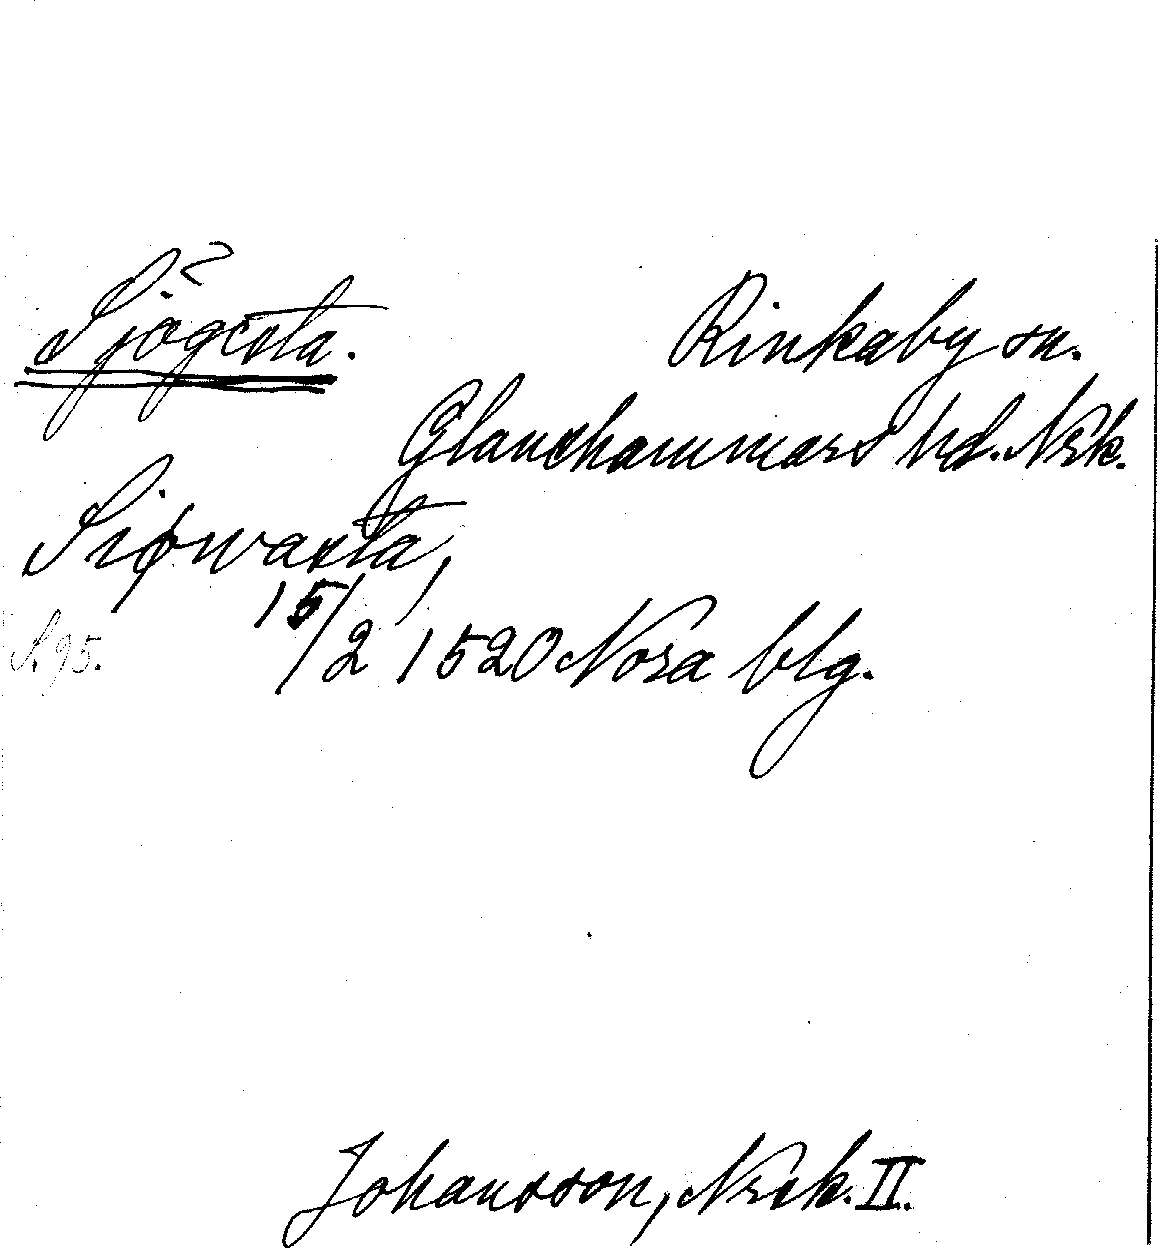 Sjögesta. Rinkaby sn.
Glanshammars hd. Nrk.
Siøwaxta,
15/2 1520 Nora blg.
S. 95.
Johansson, Nrk. II.